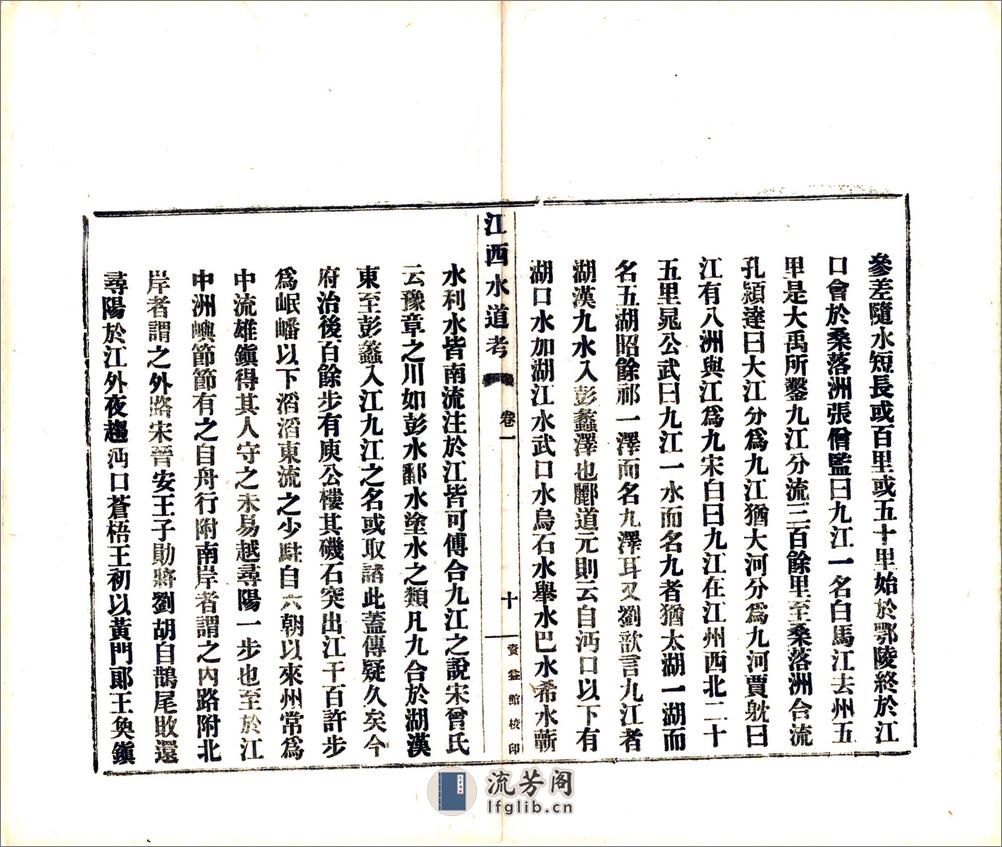 參差隨水短長或百里或五十里始於鄂陵終於江
口會於桑落洲張僧監曰九江一名白馬江去州五
里是大禹所鑿九江分流三百餘里至桑落洲合流
孔潁達曰大江分爲九江猶大河分爲九河賈躭曰
江有八洲與江爲九宋白曰九江在江州西北二十
五里晁公武曰九江一水而名九者猶太湖一湖而
名五湖昭餘祁一澤而名九澤耳又劉歆言九江者
湖漢九水入彭蠡澤也酈道元則云自沔口以下有
湖口水加湖江水武口水烏石水舉水巴水希水蘄
江西水道考
卷一
十
資益館校印
水利水皆南流注於江皆可傅合九江之說宋曾氏
云豫章之川如彭水鄱水塗水之類凡九合於湖漢
東至彭蠡入江九江之名或取諸此蓋傳疑久矣今
府治後百餘步有庾公樓其磯石突出江干百許步
爲岷嶓以下滔滔東流之少駐自六朝以來州常爲
中流雄鎮得其人守之未易越尋陽一步也至於江
中洲嶼節節有之自舟行附南岸者謂之內路附北
岸者謂之外路宋晉安王子勛將劉胡自鵲尾敗還
尋陽於江外夜趨沔口蒼梧王初以黃門郎王奐鎮
流芳阁
lfglib.cn